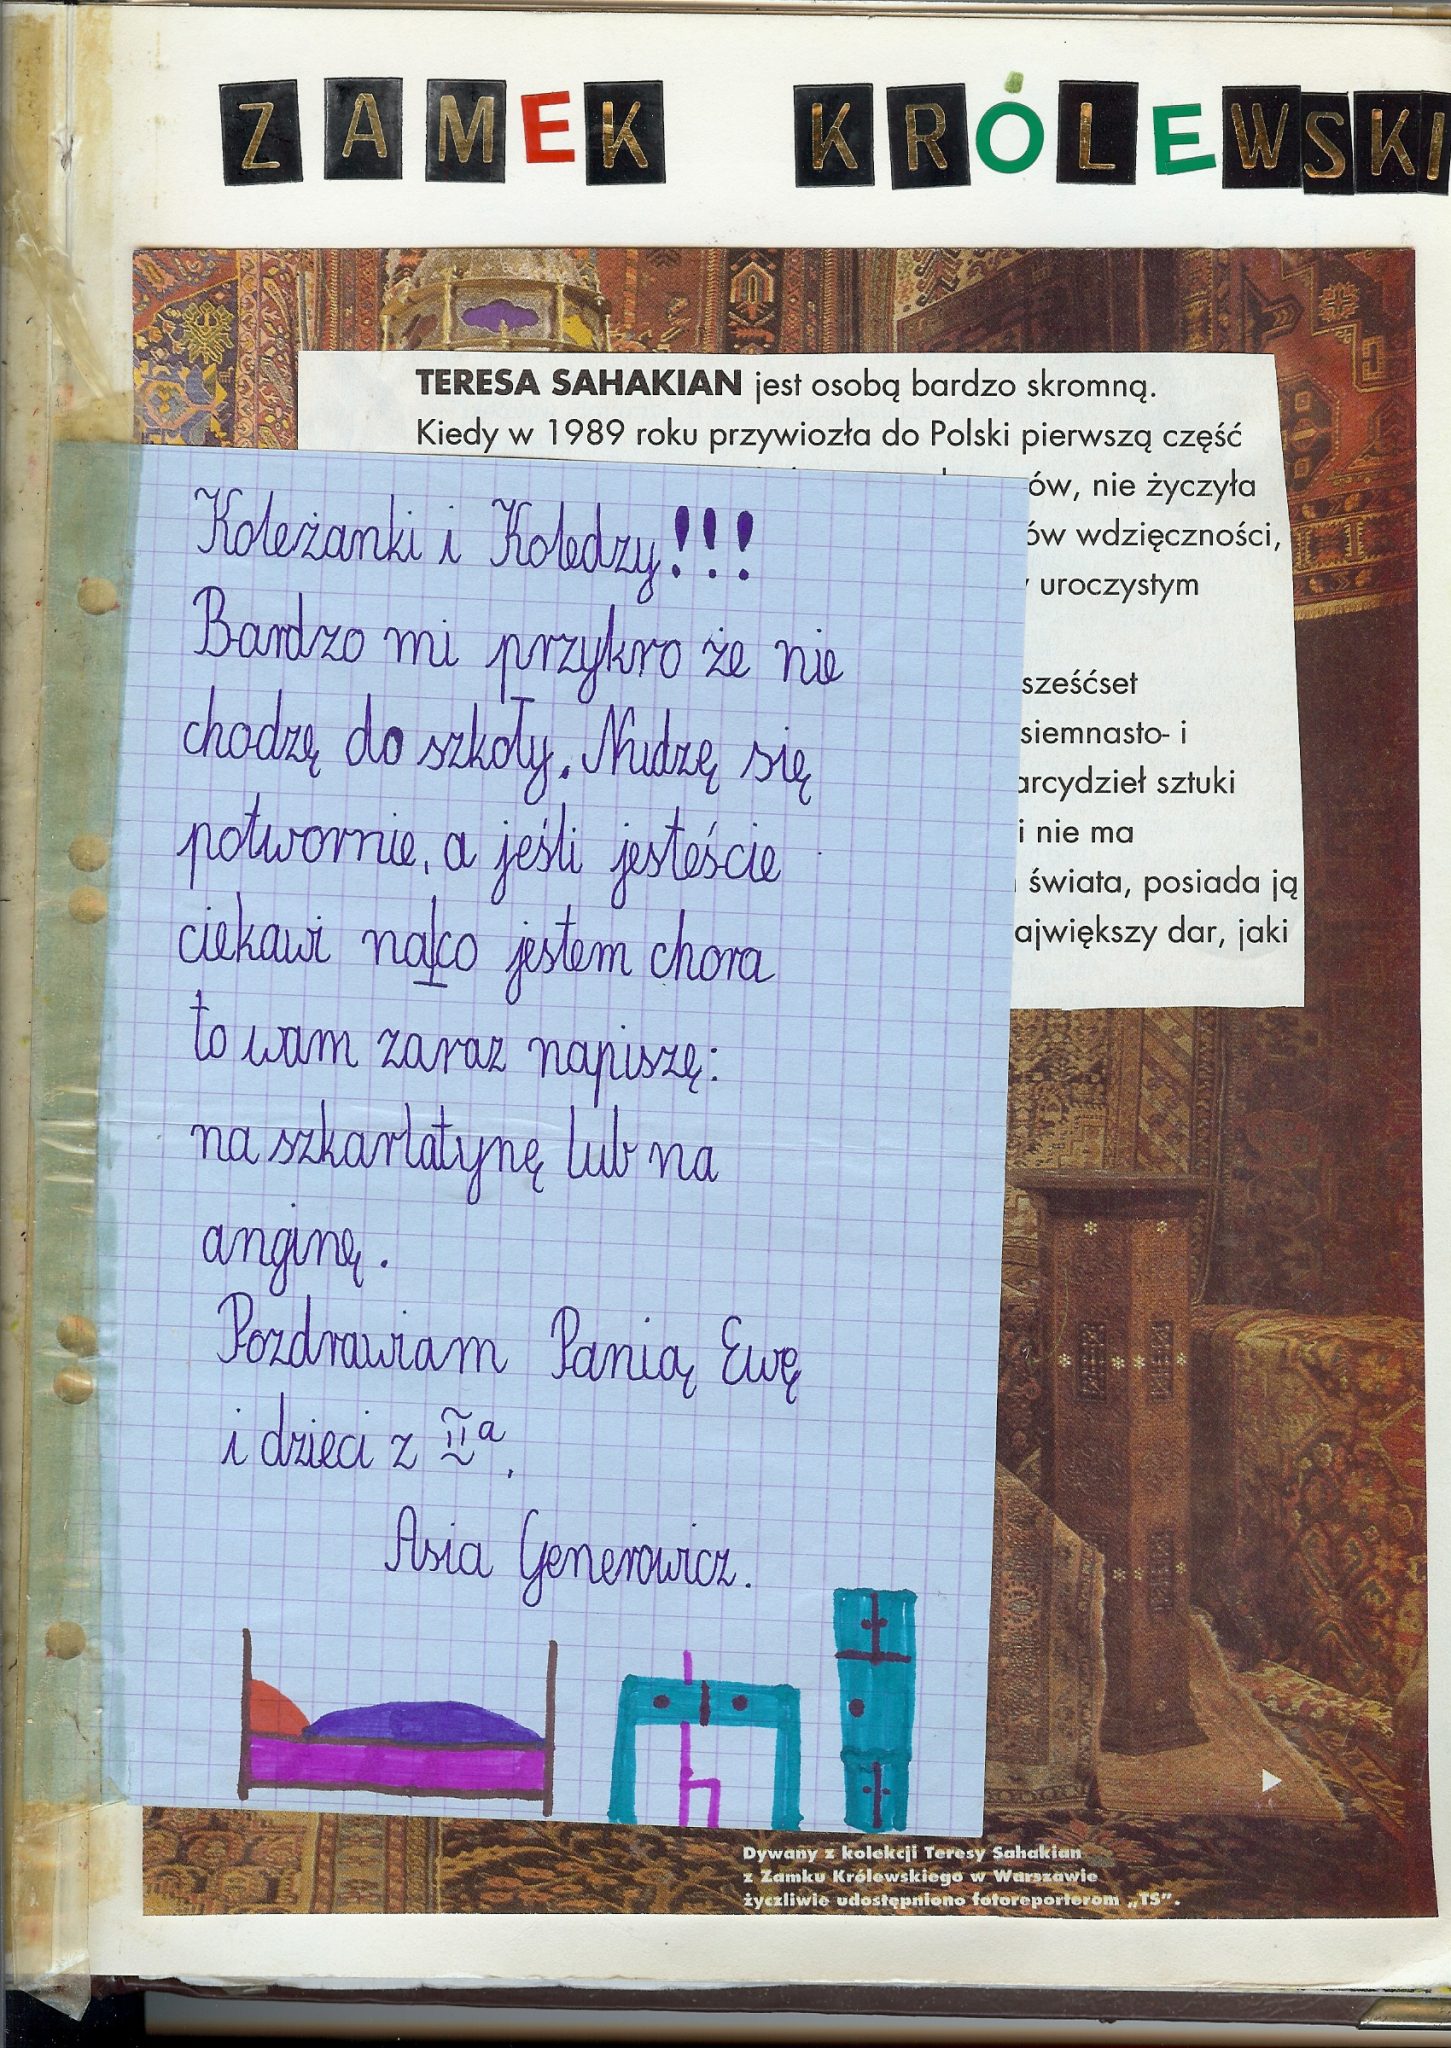 ZAMEK KRÓLEWSKI
TERESA SAHAKIAN jest osobą bardzo skromną.
Kiedy w 1989 roku przywiozła do Polski pierwszą część
ów, nie życzyła
ów wdzięczności,
uroczystym
sześćset
siemnasto- i
arcydzieł sztuki
i nie ma
świata, posiada ją
ajwiększy dar, jaki
Koleżanki i Koledzy!!!
Bardzo mi przykro że nie
chodzę do szkoły. Nudzę się
potwornie, a jeśli jesteście
ciekawi na|co jestem chora
to wam zaraz napiszę:
na szkarlatynę lub na
anginę.
Pozdrawiam Panią Ewę
i dzieci z II a.
Asia Generowicz.
Dywany z kolekcji Teresy Sahakian
z Zamku Królewskiego w Warszawie
życzliwie udostępniono fotoreporterom „TS”.